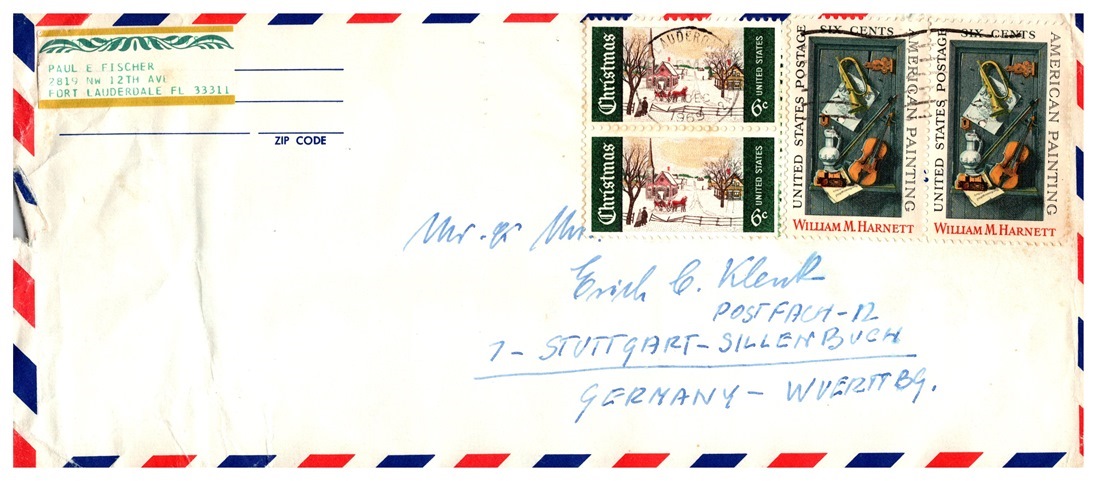 PAUL E FISCHER
2819 NW 12TH AVE
FORT LAUDERDALE FL 33311
ZIP CODE
Christmas
UNITED STATES
6c
Christmas
UNITED STATES
6c
LAUDERD
DEC
1969
SIX CENTS
UNITED STATES POSTAGE
AMERICAN PAINTING
WILLIAM M. HARNETT
SIX CENTS
UNITED STATES POSTAGE
AMERICAN PAINTING
WILLIAM M. HARNETT
Mr. & Mrs.
Erich C. Klenk
POSTFACH-12
7-STUTTGART-SILLENBUCH
GERMANY-WUERTTBG.